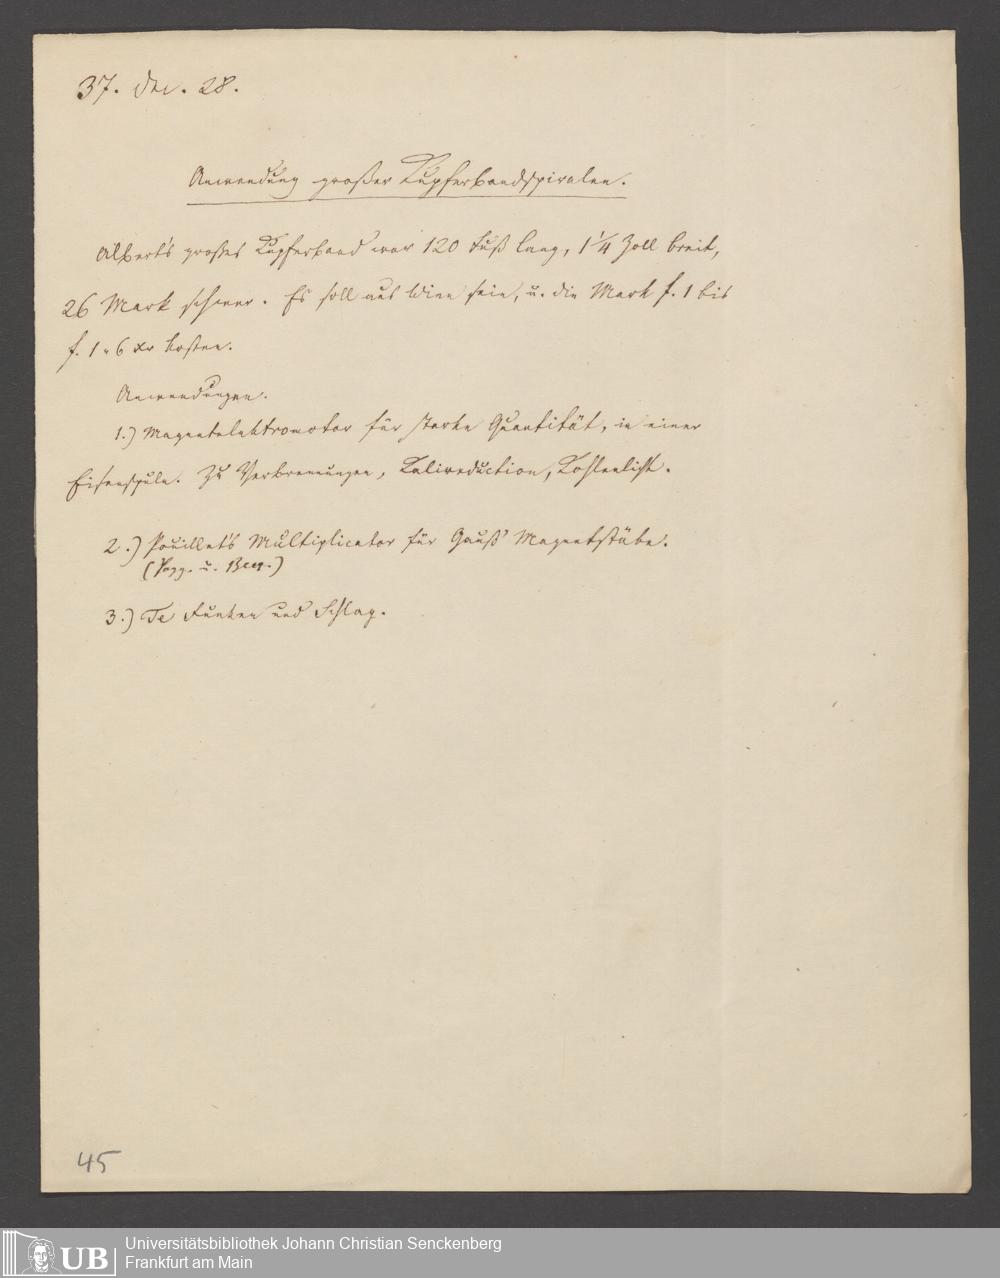 37. Dec. 28.
Anwendung großer Kupferbandspiralen.
Albert's großes Kupferband war 120 Fuß lang, 1 1/4 Zoll breit,
26 Mark schwer. Es soll aus Wien sein, u. die Mark f. 1 bis
f. 1 " 6 xr kosten.
Anwendungen.
1.) Magnetelektromotor für starke Quantität, in einer
Eisenspule. Zu Verbrennungen, Kalireduction, Kohlenlicht.
2.) Pouillet's Multiplicator für Gauß' Magnetstäbe.
(Pogg. u. Becq.)
3.) Te Funken und Schlag.
45
UB
Universitätsbibliothek Johann Christian Senckenberg
Frankfurt am Main